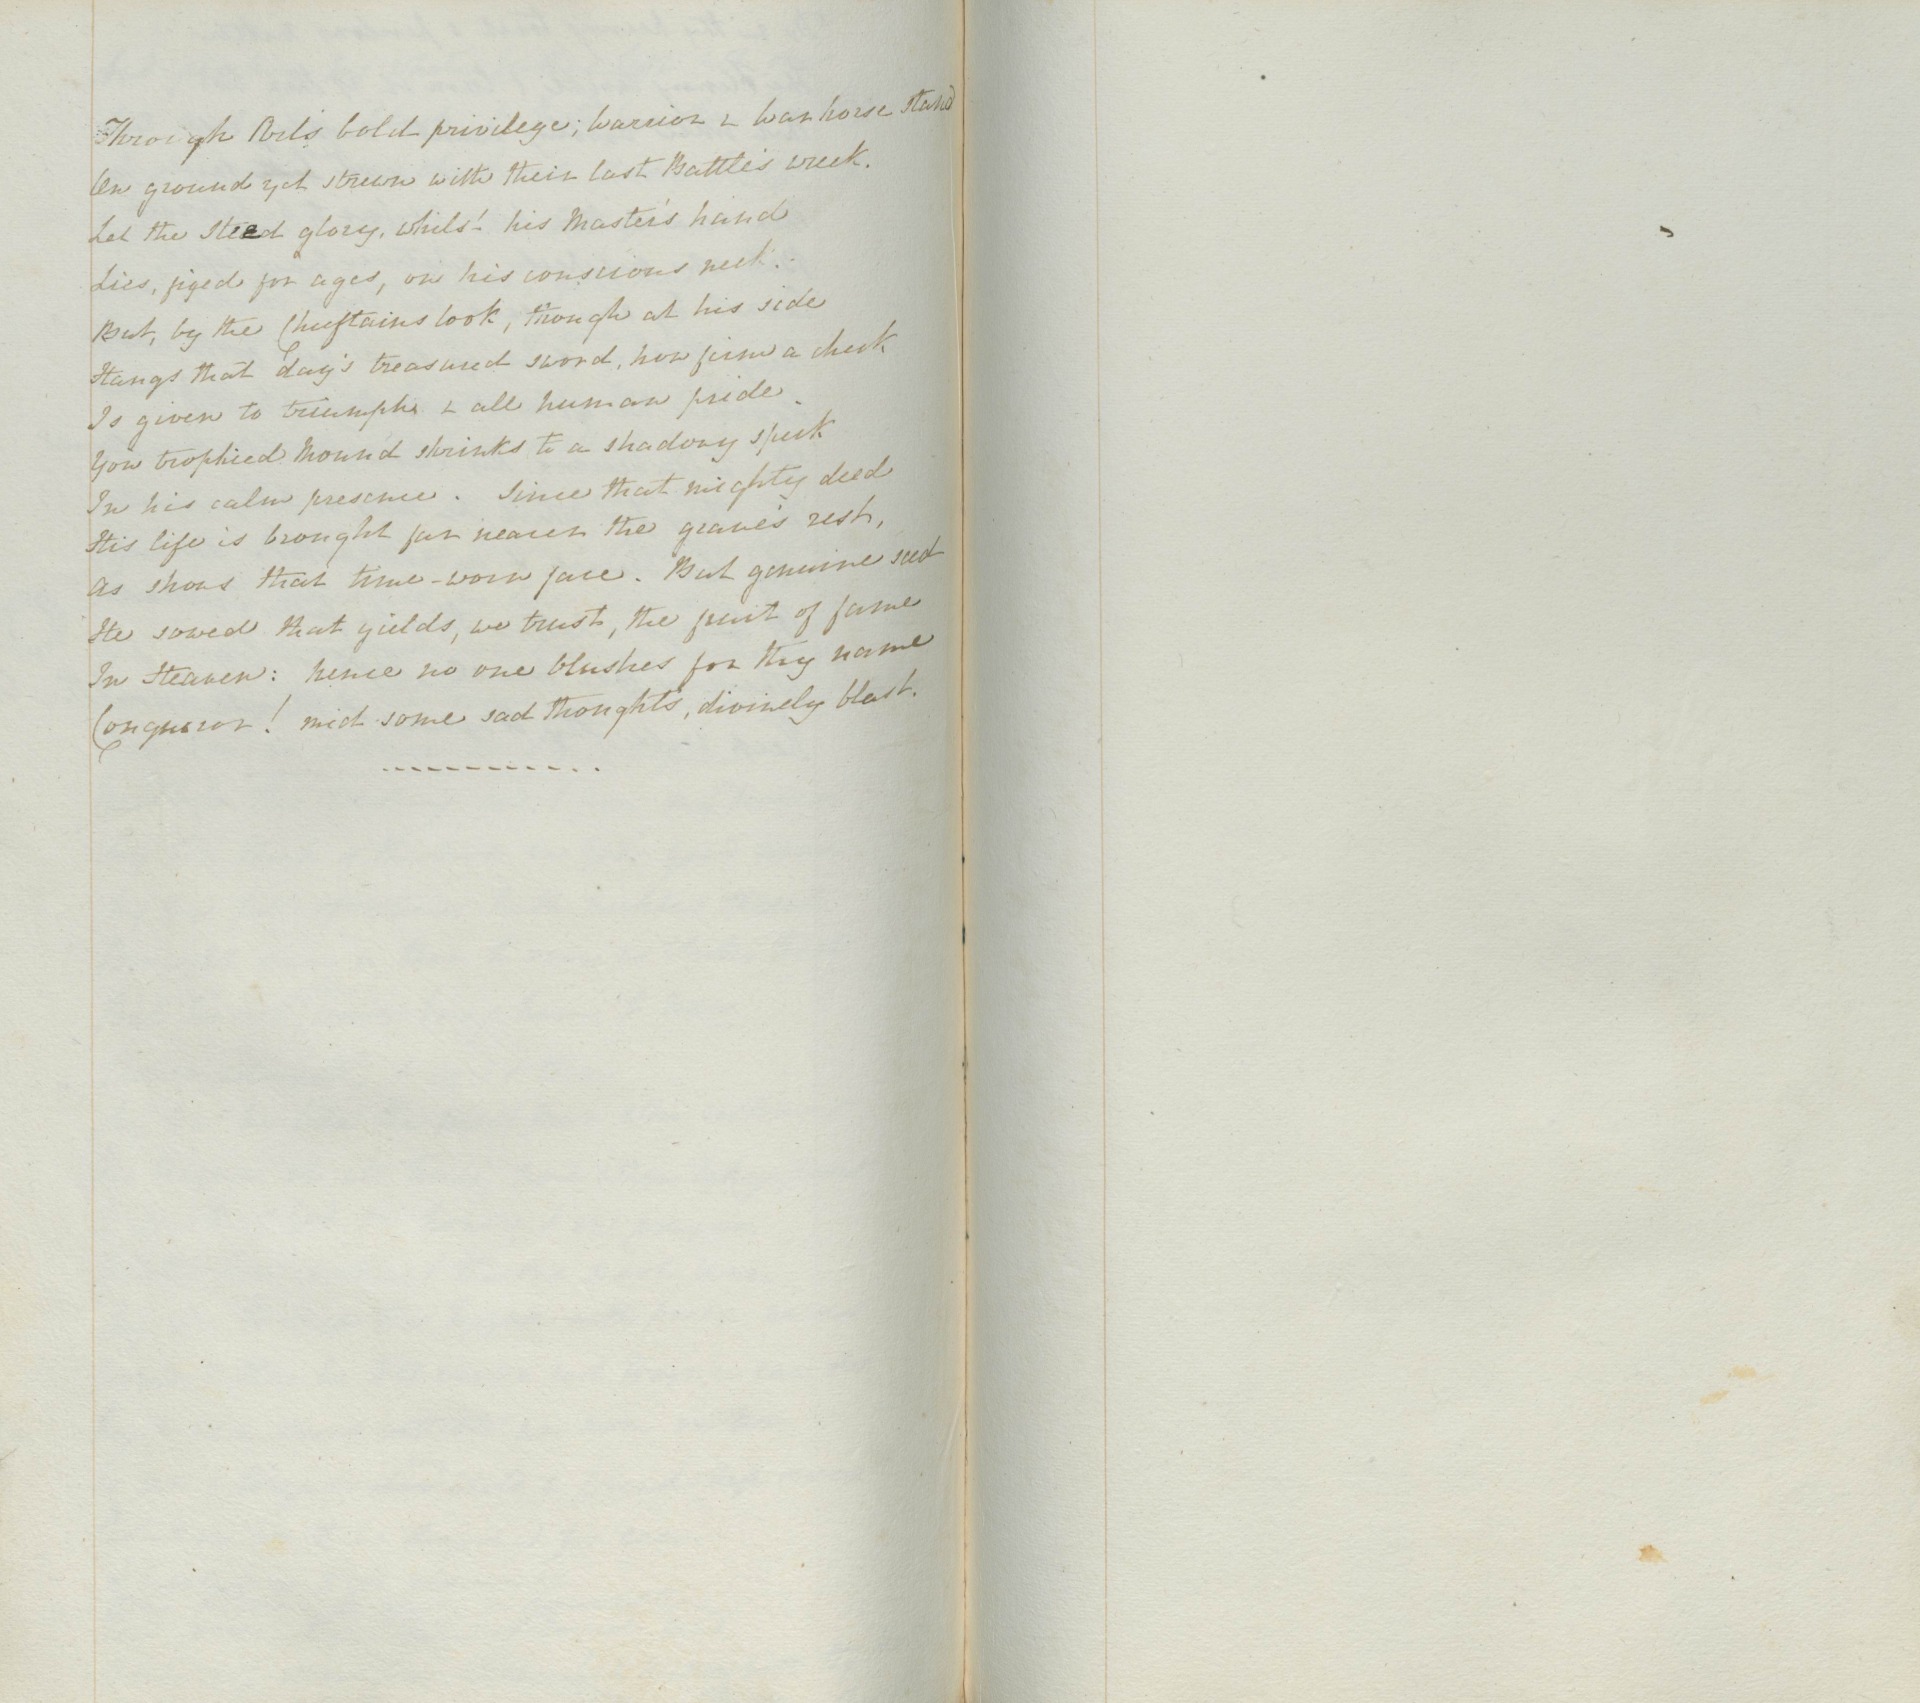 Through Art's bold privilege; Warrior & War horse stand
On ground yet strewn with their last Battle's wreck.
Let the Steed glory, whilst his Master's hand
Lies, fixed for ages, on his conscious neck.
But, by the Chieftains look, though at his side
Hangs that day's treasured sword, how firm a check
Is given to triumph & all human pride.
Yon trophied Mound shrinks to a shadowy speck
In his calm presence. Since that mighty deed
His life is brought far nearer the grave's rest,
As shows that time-worn face. But genuine seed
He sowed that yields, we trust, the fruit of fame
In Heaven: hence no one blushes for thy name
Conqueror! mid some sad thoughts, divinely blest.